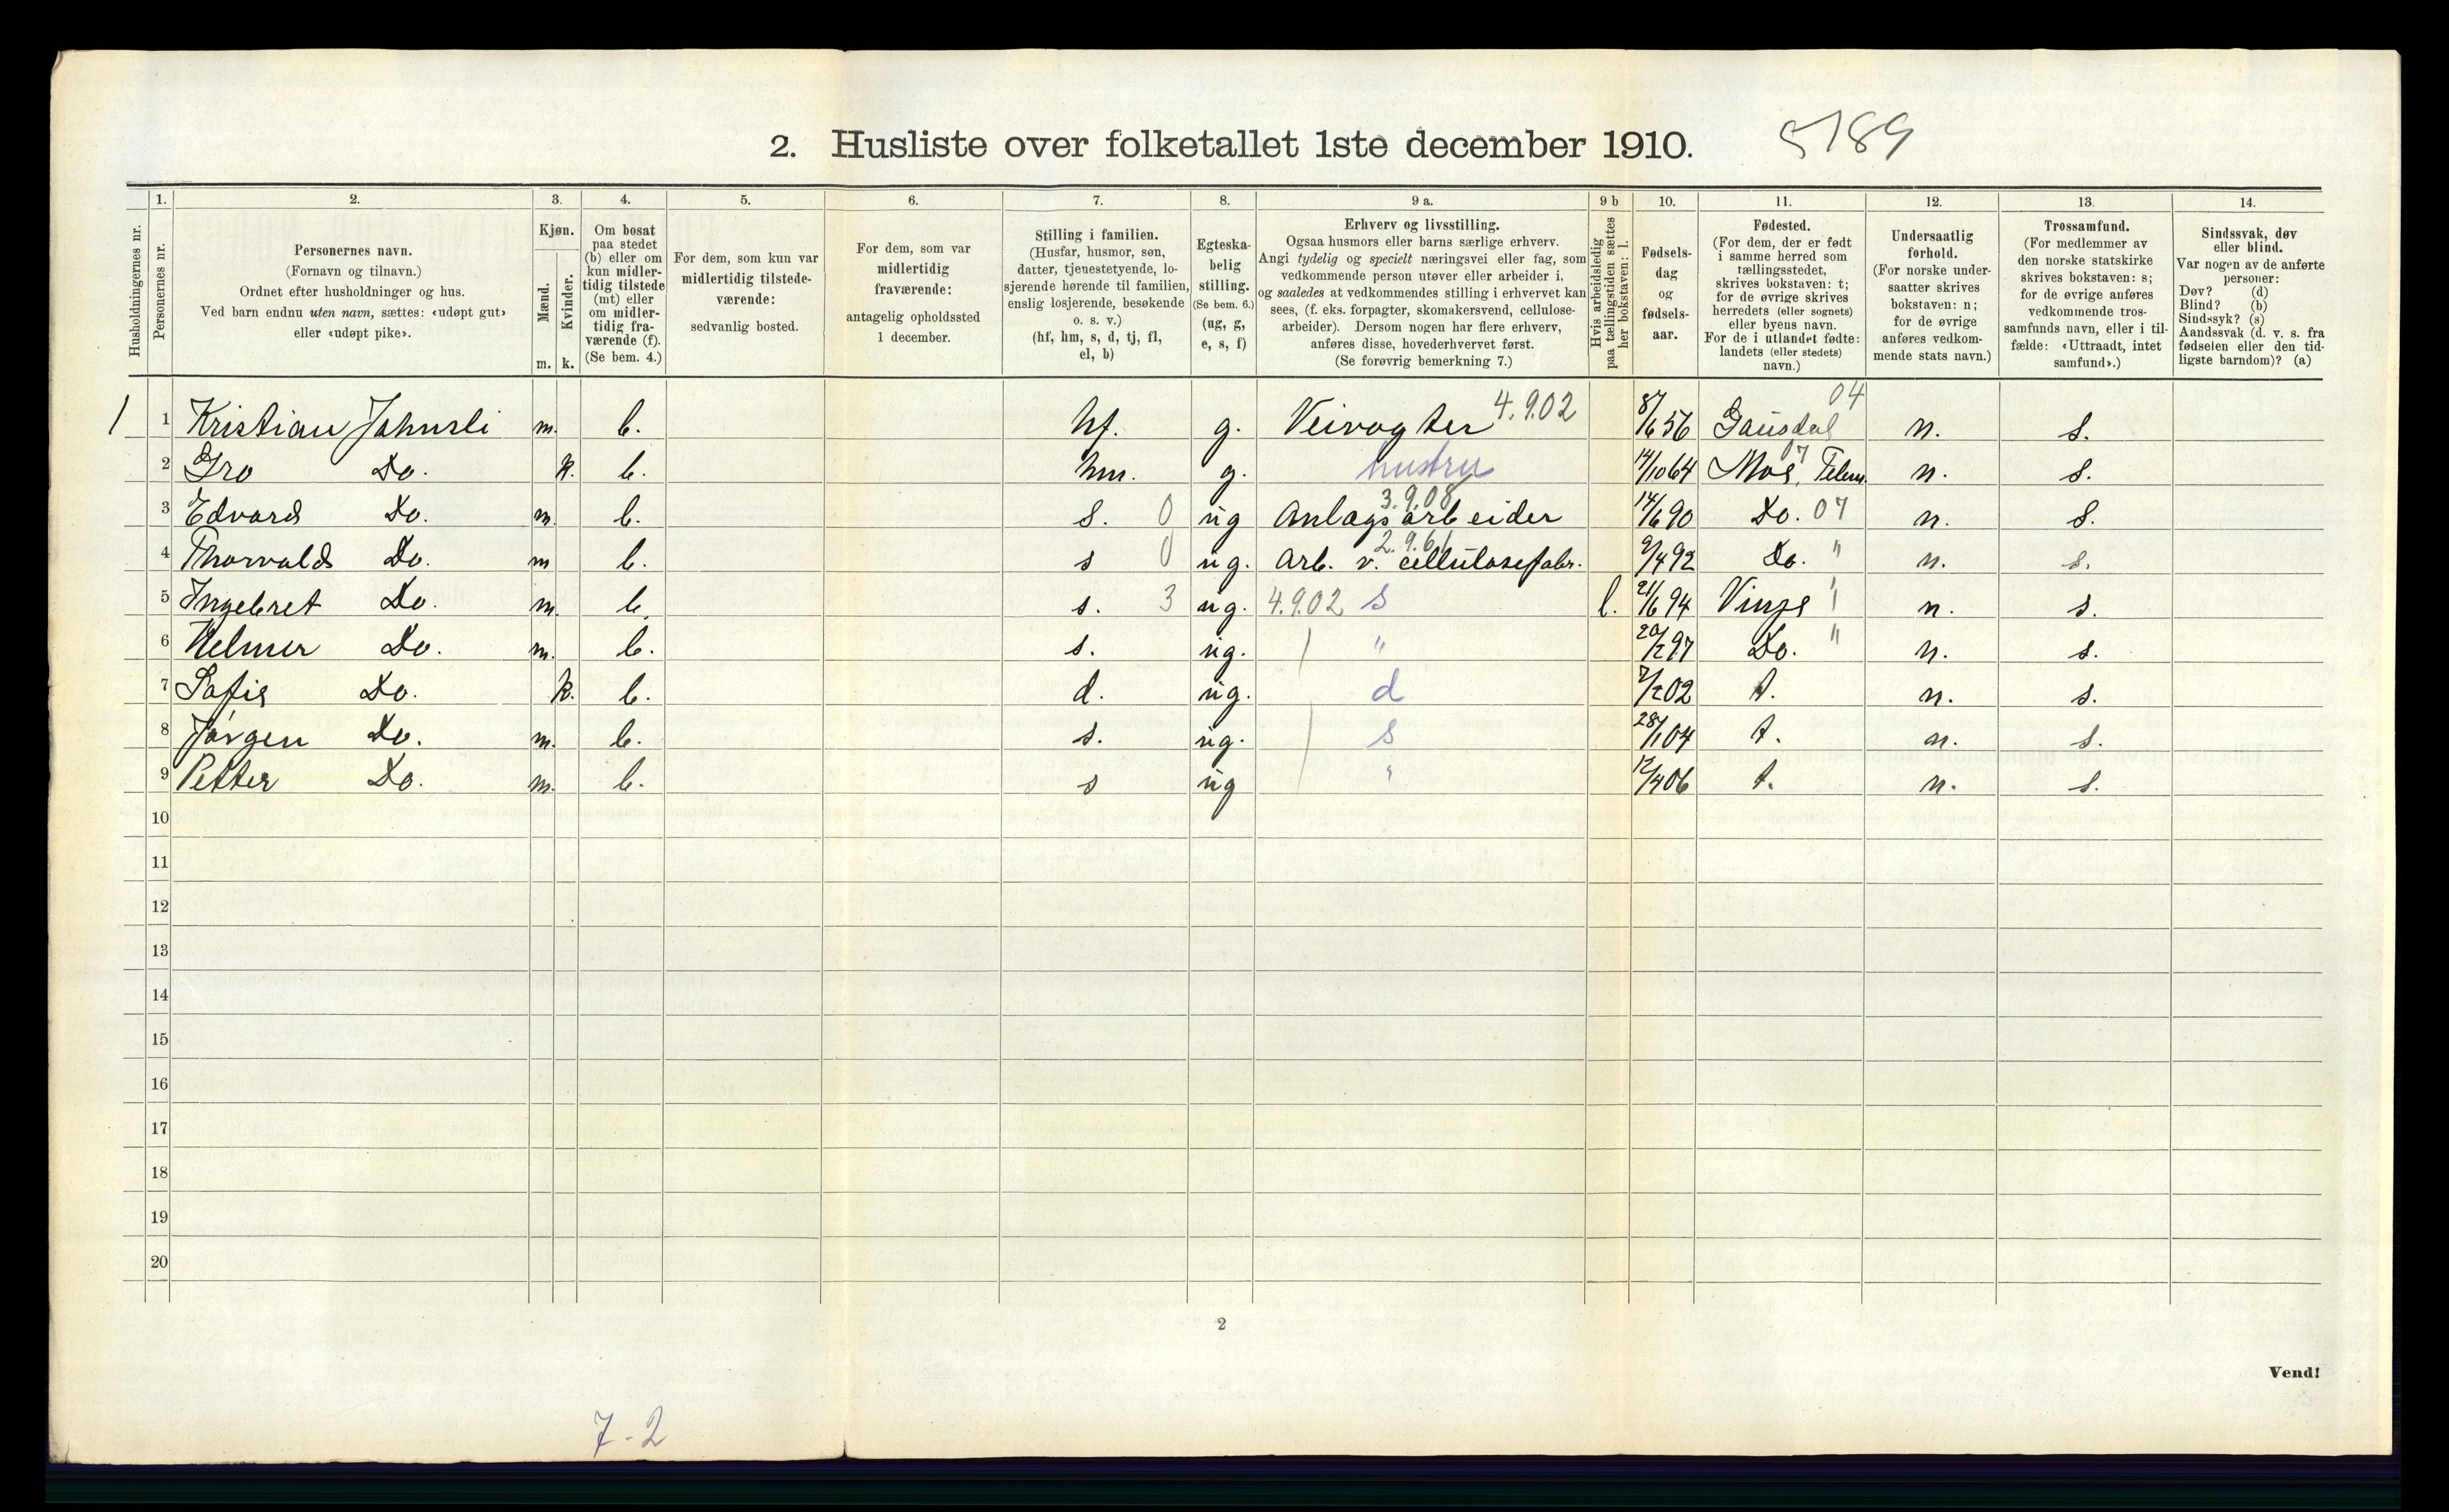 2. Husliste over folketallet 1ste december 1910.
5189
Husholdningernes nr.
1.
Personernes nr.
2.
Personernes navn.
(Fornavn og tilnavn.)
Ordnet efter husholdninger og hus.
Ved barn endnu uten navn, sættes: «udøpt gut»
eller «udøpt pike».
3.
Kjøn.
Mænd.
Kvinder.
m. k.
4.
Om bosat
paa stedet
(b) eller om
kun midler-
tidig tilstede
(mt) eller
om midler-
tidig fra-
værende (f).
(Se bem. 4.)
5.
For dem, som kun var
midlertidig tilstede-
værende:
sedvanlig bosted.
6.
For dem, som var
midlertidig
fraværende:
antagelig opholdssted
1 december.
7.
Stilling i familien.
(Husfar, husmor, søn,
datter, tjenestetyende, lo-
sjerende hørende til familien,
enslig losjerende, besøkende
o. s. v.)
(hf, hm, s, d, tj, fl,
el, b)
8.
Egteska-
belig
stilling.
(Se bem. 6.)
(ug, g,
e, s, f)
9 a.
Erhverv og livsstilling.
Ogsaa husmors eller barns særlige erhverv.
Angi tydelig og specielt næringsvei eller fag, som
vedkommende person utøver eller arbeider i,
og saaledes at vedkommendes stilling i erhvervet kan
sees, (f. eks. forpagter, skomakersvend, cellulose-
arbeider). Dersom nogen har flere erhverv,
anføres disse, hovederhvervet først.
(Se forøvrig bemerkning 7.)
9 b
Hvis arbeidsledig
paa tællingstiden sættes
her bokstaven: l.
10.
Fødsels-
dag
og
fødsels-
aar.
11.
Fødested.
(For dem, der er født
i samme herred som
tællingsstedet,
skrives bokstaven: t;
for de øvrige skrives
herredets (eller sognets)
eller byens navn.
For de i utlandet fødte:
landets (eller stedets)
navn.)
12.
Undersaatlig
forhold.
(For norske under-
saatter skrives
bokstaven: n;
for de øvrige
anføres vedkom-
mende stats navn.)
13.
Trossamfund.
(For medlemmer av
den norske statskirke
skrives bokstaven: s;
for de øvrige anføres
vedkommende tros-
samfunds navn, eller i til-
fælde: «Uttraadt, intet
samfund».)
14.
Sindssvak, døv
eller blind.
Var nogen av de anførte
personer:
Døv? (d)
Blind? (b)
Sindssyk? (s)
Aandssvak (d. v. s. fra
fødselen eller den tid-
ligste barndom)? (a)
1 1 Kristian Jahnsli m. b. hf. g. Veivogter 4.9.02 8/6 56 Gausdal 04 n. s.
2 Gro Do. k. b. hm. g. hustru 14/10 64 Mos, Telem. 07 n. s.
3 Edvard Do. m. b. s. 0 ug Anlagsarbeider 3.9.08 14/6 90 Do. 07 n. s.
4 Thorvald Do. m b. s 0 ug. Arb. v. cellulosefabr. 2.9.61 9/4 92 Do. " n. s.
5 Ingebret Do. m. b. s. 3 ug. 4.9.02 s l. 21/6 94 Vinje n. s.
6 Helmer Do. m. b. s. ug. " 20/2 97 Do. " n. s.
7 Sofie Do. k. b. d. ug. d 7/2 02 t. n. s.
8 Jørgen Do. m. b. s. ug. s 28/1 04 t. n. s.
9 Petter Do. m. b. s ug " 12/4 06 t. n. s.
10
11
12
13
14
15
16
17
18
19
20
2
Vend!
7-2